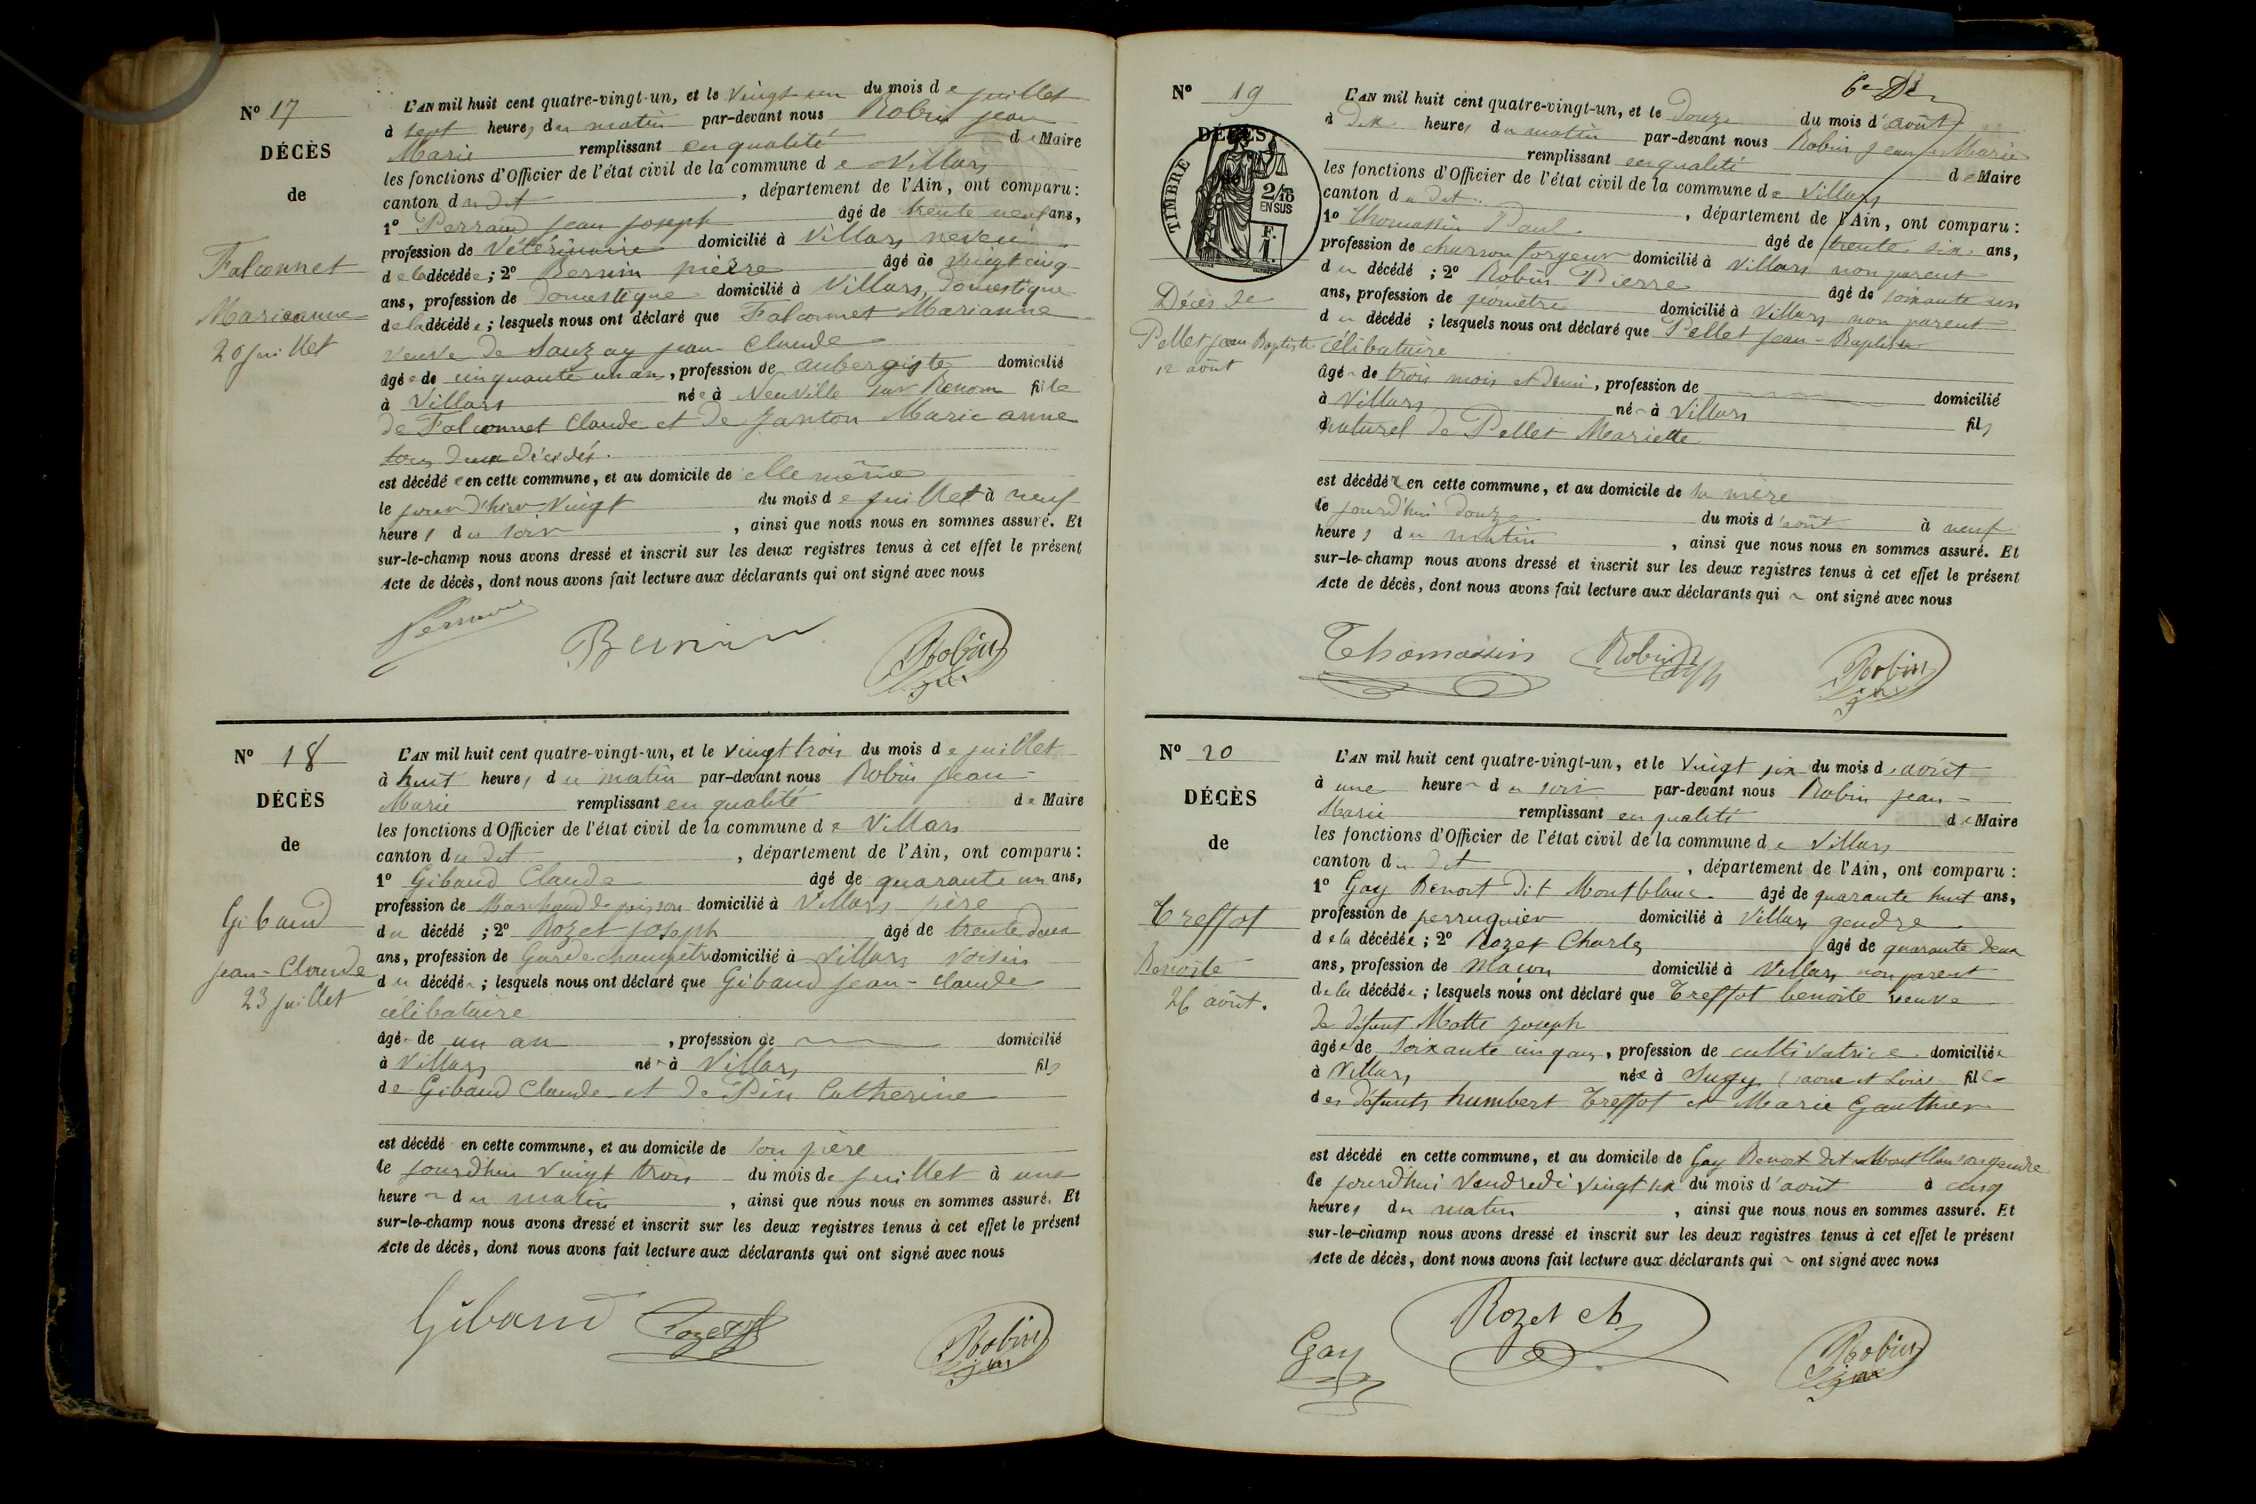 Nº 17
DÉCÈS
de
Falconnet
Marieanne
20 Juillet
L'AN mil huit cent quatre-vingt-un, et le vingt un du mois de juillet
à sept heures du matin par-devant nous Robin jean
Marie remplissant en qualité de Maire
les fonctions d'Officier de l'état civil de la commune de Villars
canton du dit, département de l'Ain, ont comparu :
1º Perraud jean joseph âgé de trente neuf ans,
profession de Vétérinaire domicilié à Villars neveu
de la décédée ; 2º Bernin pierre âgé de vingt cinq
ans, profession de Domestique domicilié à Villars, Domestique
de la décédée ; lesquels nous ont déclaré que Falconnet Marianne
veuve de Sauzay jean Claude
âgée de cinquante un an, profession de aubergiste domicilié
à Villars née à Neuville sur Renom fille
de Falconnet Claude et de Janton Marie anne
tous deux décédés.
est décédée en cette commune, et au domicile de elle même
le jour d'hier vingt du mois de juillet à neuf
heures du soir, ainsi que nous nous en sommes assuré. Et
sur-le-champ nous avons dressé et inscrit sur les deux registres tenus à cet effet le présent
Acte de décès, dont nous avons fait lecture aux déclarants qui ont signé avec nous
Bernin Robin
Nº 18
DÉCÈS
de
Gibaud
jean-Claude
23 juillet
L'AN mil huit cent quatre-vingt-un, et le vingt trois du mois de juillet
à huit heures du matin par-devant nous Robin jean
Marie remplissant en qualité de Maire
les fonctions d'Officier de l'état civil de la commune de Villars
canton du dit, département de l'Ain, ont comparu :
1º Gibaud Claude âgé de quarante un ans,
profession de Marchand de poisson domicilié à Villars père
du décédé ; 2º Rozet joseph âgé de trente deux
ans, profession de Garde champêtre domicilié à Villars voisin
du décédé ; lesquels nous ont déclaré que Gibaud jean-claude
célibataire
âgé de un an, profession de domicilié
à Villars né à Villars fils
de Gibaud Claude et de Pin Catherine
est décédé en cette commune, et au domicile de son père
le jourd'hui vingt trois du mois de juillet à une
heure du matin, ainsi que nous nous en sommes assuré. Et
sur-le-champ nous avons dressé et inscrit sur les deux registres tenus à cet effet le présent
Acte de décès, dont nous avons fait lecture aux déclarants qui ont signé avec nous
Gibaud Rozet Robin
6e
Nº 19
DÉCÈS
TIMBRE
2/10
EN SUS
F.
1.
Décès de
Pellet jean Baptiste
12 août
L'AN mil huit cent quatre-vingt-un, et le douze du mois d'août
à dix heures du matin par-devant nous Robin jean Marie
remplissant en qualité de Maire
les fonctions d'Officier de l'état civil de la commune de Villars
canton du dit, département de l'Ain, ont comparu :
1º Thomassin Paul âgé de trente six ans,
profession de charron forgeur domicilié à Villars non parent
du décédé ; 2º Robin Pierre âgé de soixante un
ans, profession de géomètre domicilié à Villars non parent
du décédé ; lesquels nous ont déclaré que Pellet jean-Baptiste
célibataire
âgé de trois mois et demi, profession de domicilié
à Villars né à Villars fils
naturel de Pellet Mariette
est décédé en cette commune, et au domicile de sa mère
le jourd'hui douze du mois d'août à neuf
heures du matin, ainsi que nous nous en sommes assuré. Et
sur-le-champ nous avons dressé et inscrit sur les deux registres tenus à cet effet le présent
Acte de décès, dont nous avons fait lecture aux déclarants qui ont signé avec nous
Thomassin Robin Robin
Nº 20
DÉCÈS
de
Treffot
Benoite
26 août.
L'AN mil huit cent quatre-vingt-un, et le vingt six du mois d'août
à une heure du soir par-devant nous Robin jean-
Marie remplissant en qualité de Maire
les fonctions d'Officier de l'état civil de la commune de Villars
canton du dit, département de l'Ain, ont comparu :
1º Gay Benoit dit Montblanc âgé de quarante huit ans,
profession de perruquier domicilié à Villars gendre
de la décédée ; 2º Rozet Charles âgé de quarante deux
ans, profession de maçon domicilié à Villars non parent
de la décédée ; lesquels nous ont déclaré que Treffot benoite veuve
de défunt Matte joseph
âgée de soixante cinq ans, profession de cultivatrice domiciliée
à Villars née à Sugy (saone et Loire fille
des défunts humbert Treffot et Marie Gauthier
est décédé en cette commune, et au domicile de Gay Benoit dit Montblanc son gendre
le jourd'hui vendredi vingt six du mois d'août à cinq
heures du matin, ainsi que nous nous en sommes assuré. Et
sur-le-champ nous avons dressé et inscrit sur les deux registres tenus à cet effet le présent
Acte de décès, dont nous avons fait lecture aux déclarants qui ont signé avec nous
Gay Rozet ch Robin